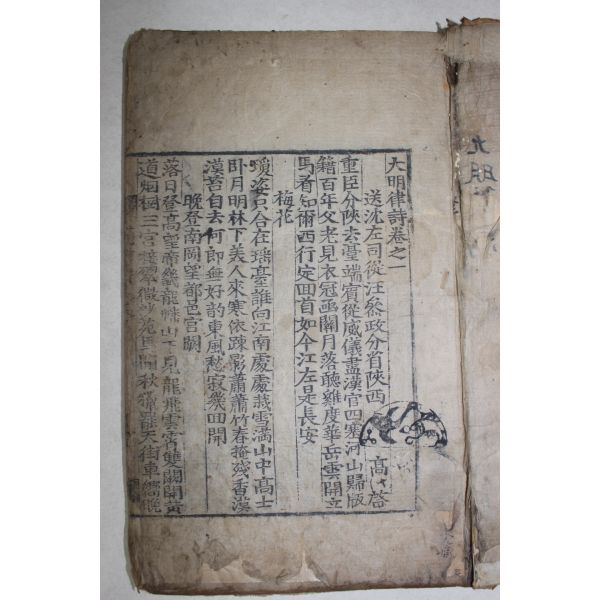 大明律詩卷之一
送沈左司從汪叅政分省陝西
高啓
重臣分陝去臺端賓從威儀盡漢官四塞河山歸版
籍百年父老見衣冠凾關月落聽雞度華岳雲開立
馬看知爾西行定回首如今江左是長安
梅花
瓊姿只合在瑶臺誰向江南處處栽雪滿山中高士
卧月明林下美人來寒依疎影蕭蕭竹春掩殘香漠
漠苔自去何郎無好韵東風愁寂幾回開
晚登南岡望都邑宮闕
落日登高望帝畿龍蟠山下見龍飛雲霄雙闕開黃
道烟樹三宮接翠微沙苑馬閑秋獵罷天街車